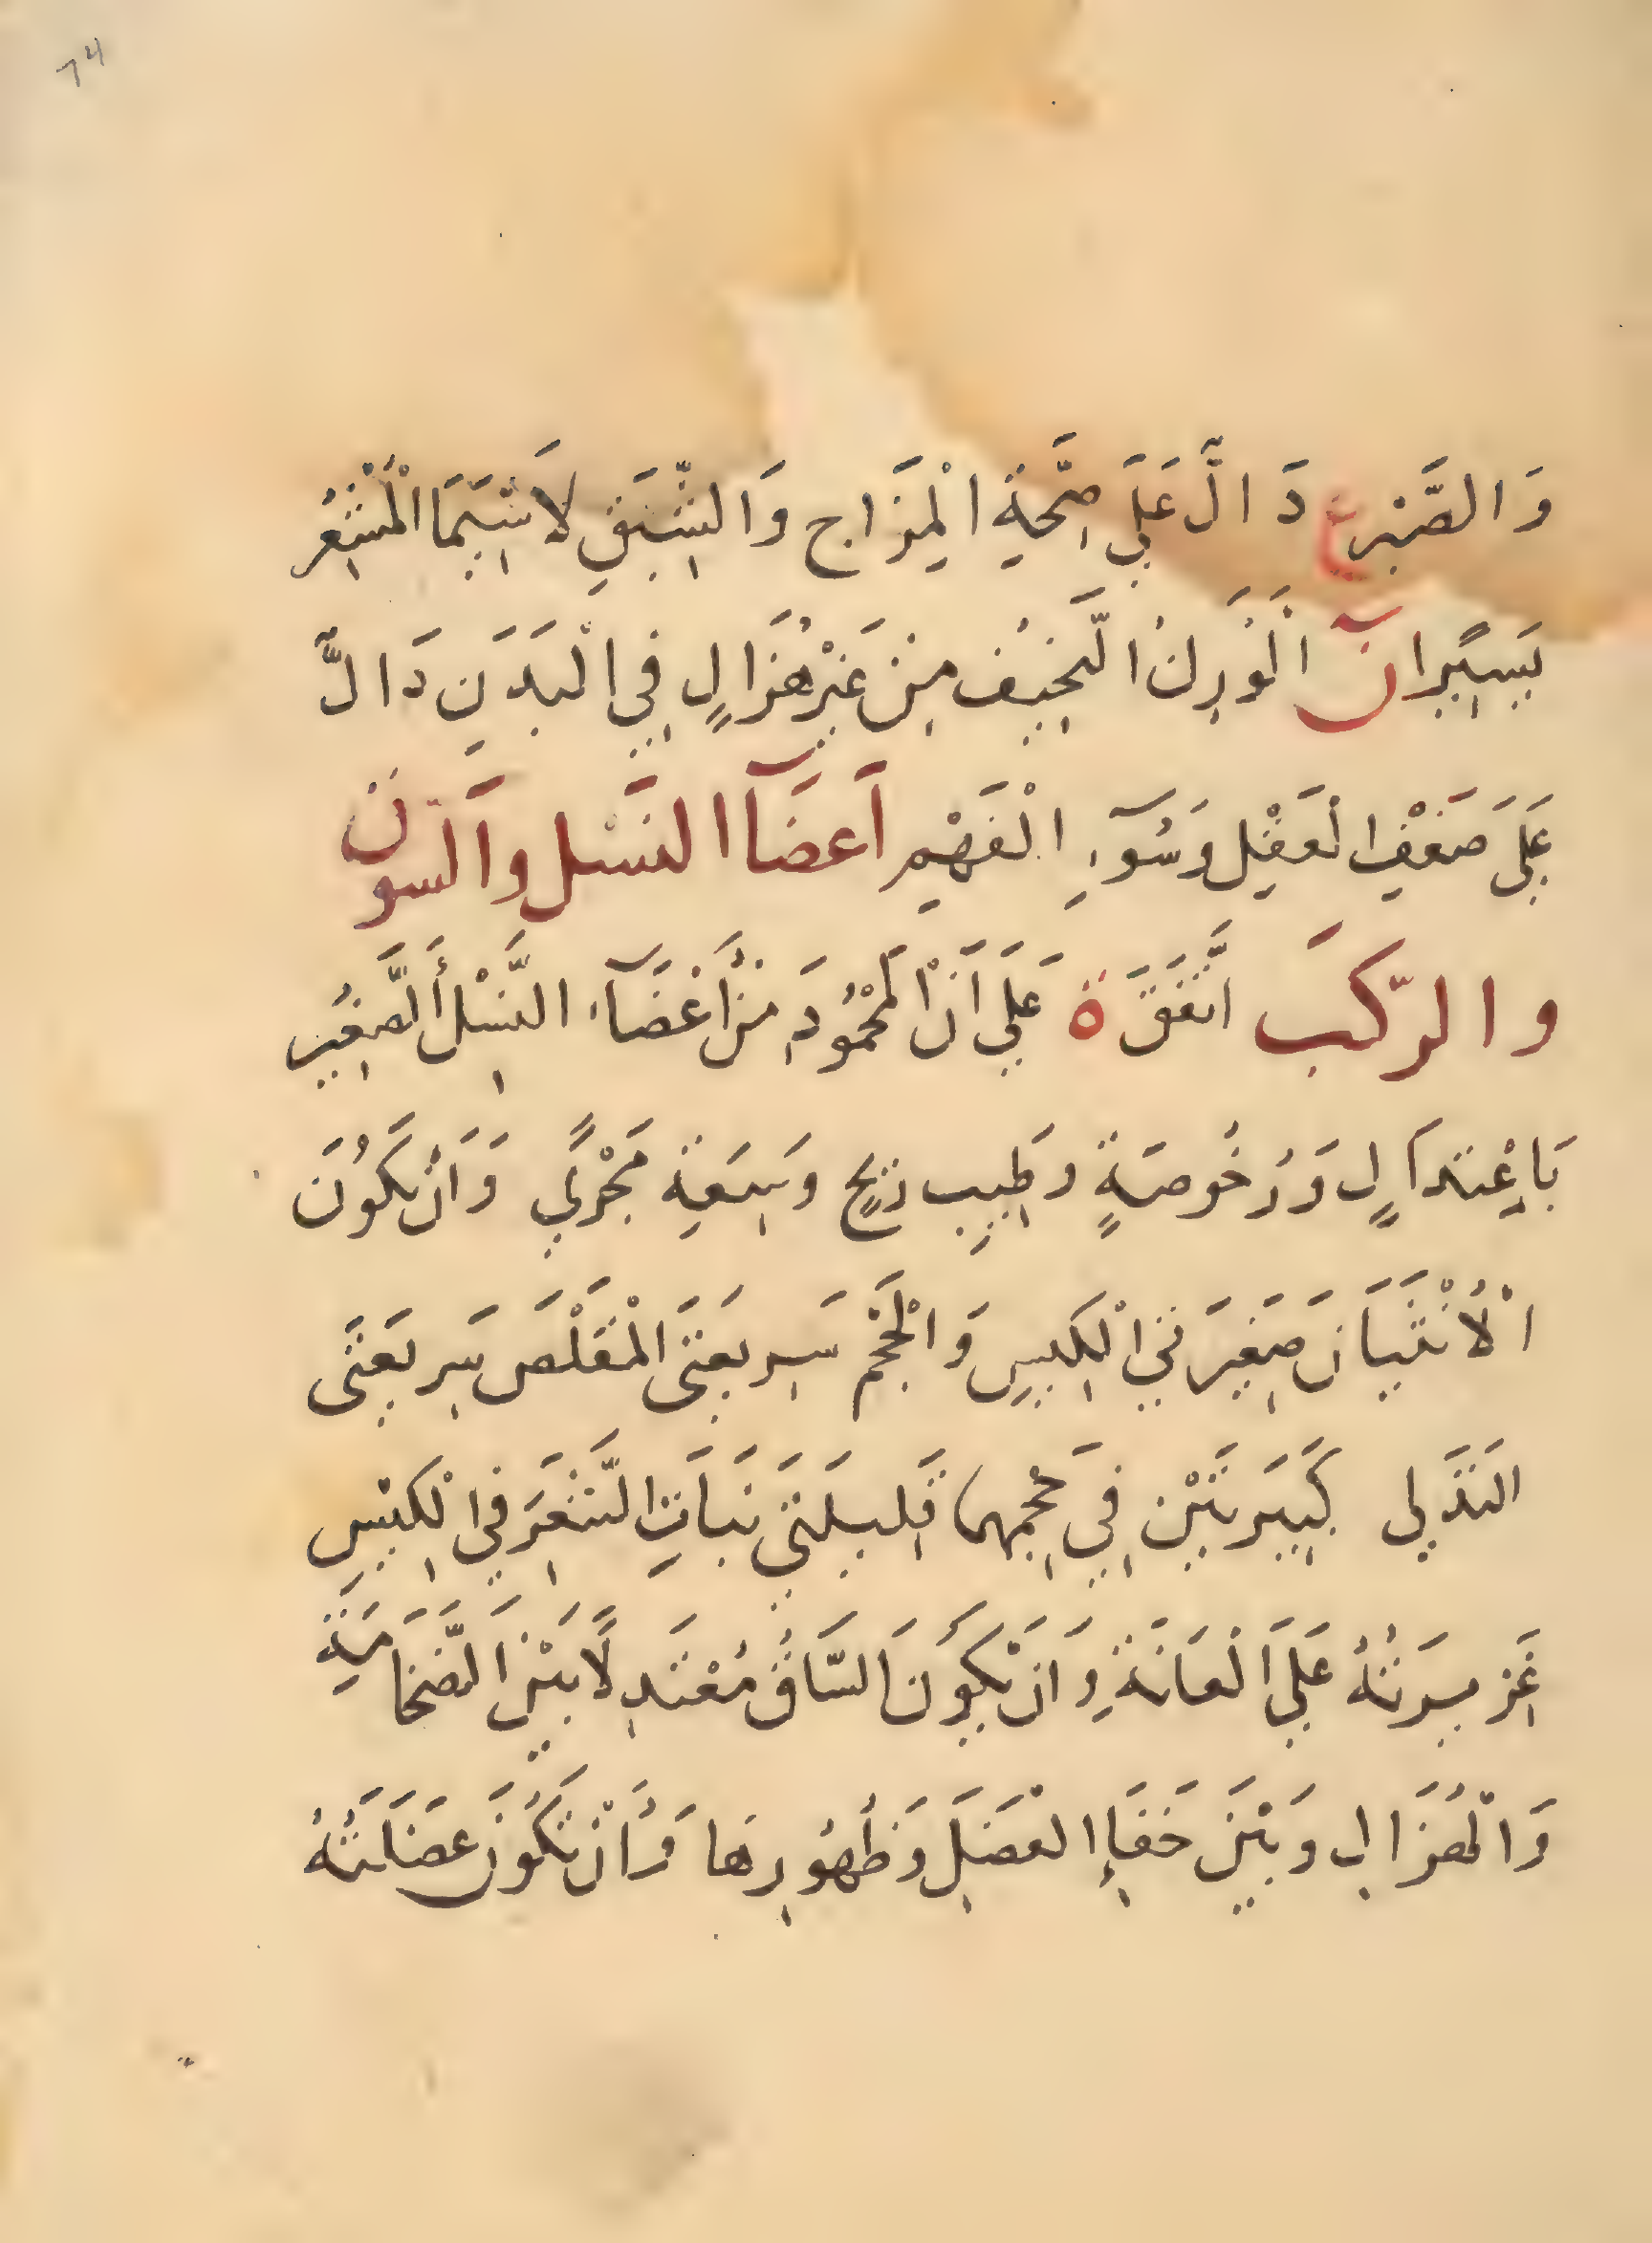 وَالصَّبْرِ ع دَالَّ عَلَى صِحَّةِ الْمِزَاج وَالشَّبَقِ لَا سِيَّمَا الْمُشْعِرُ
يَسِيرًا نَ الْوَرِكُ النَّحِيفُ مِنْ غَيْرِ هُزَالٍ فِي الْبَدَنِ دَالٌّ
عَلَى ضَعْفِ الْعَقْلِ وَسُوءِ الْفَهْمِ اَعضَآ النَسْل وَالسون
والرّكَبَ اتَّفَقَ ةَ عَلَى اَنَّ الْمَحْمُودَ مِنْ أَعْضَآءِ النَّسْلِ أَلصَّغِيرِ
بَاعْتِدَالٍ وَرُخُوصَةٍ وَطِيبِ رِيحٍ وَسِعَةِ مَجْرًى وَأَنْ يَكُونَ
الْأُنْثَيَانِ صَغِيرَتَيِ الْكِيسِ وَالْحَجْمِ سَرِيعَتَي الْمَقْلَصِ سَرِيعَتَى
التَدَلِّى كَبِيرَتَيْنِ فِي حَجْمِهما قَلِيلَتَيْ نَبَاتِ الشَّعَرِ فِي الْكِيْسِ
غَزِيرَتُهُ عَلَى الْعَانَةِ وَانْ يَكُونَ السَّاقُ مُعْتَدِلًا بَيْنَ الضَّخَامَةِ
وَالْهُزَالِ وَبَيْنَ خَفَإِ الْعَضَلِ وَظُهُورِهَا وَأَنْ تَكُونَ عَضَلَتُهُ